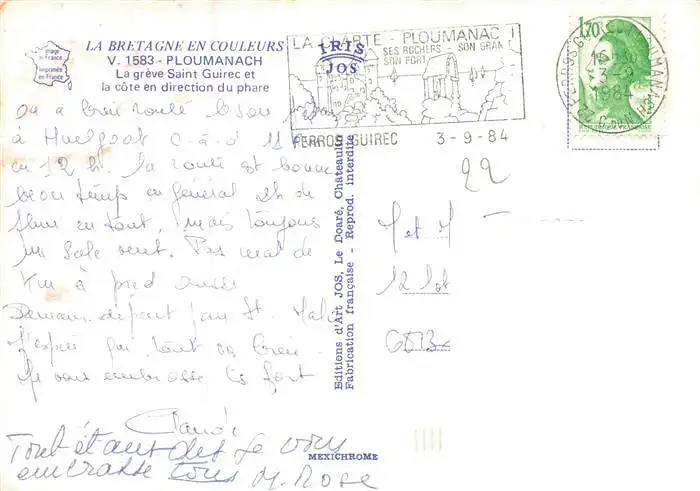 LA BRETAGNE EN COULEURS
V. 1583 - PLOUMANACH
La grève Saint Guirec et
la côte en direction du phare
Image en France
Imprimée en France
IRIS
JOS
LA CLARTE - PLOUMANAC
SES ROCHERS - SON GRANI
SON PORT
PERROS-GUIREC 3-9-84
1,70
16-30
3-9
1984
22 C. DU N.
On a bien roulé
à Huelgoat c.à.d 11
en 12 h. la route est bonne
beau temps en général 2h de
pluie en tout, mais toujours
un sale vent. Pas mal de
km à pied aussi
Demain départ pour St. Malo
J'espère que tout va bien.
Je vous embrasse très fort
Claude
Tout étant dit je vous
embrasse tous M. Rose
22
M et M
12 lot
Editions d'Art JOS, Le Doaré, Châteaulin
Fabrication française - Reprod. interdite
MEXICHROME